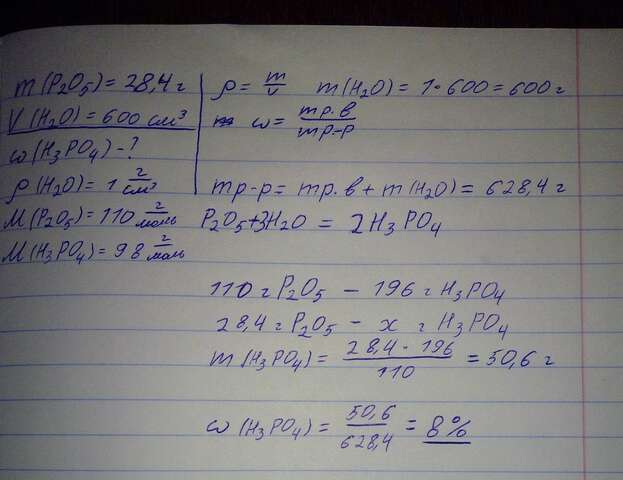 m(P₂O₅) = 28,4 г
V(H₂O) = 600 см³
ω(H₃PO₄) - ?
ρ(H₂O) = 1 г/см³
M(P₂O₅) = 110 г/моль
M(H₃PO₄) = 98 г/моль
ρ = m/v m(H₂O) = 1·600 = 600 г
ω = mр.в/mр-р
mр-р = mр.в + m(H₂O) = 628,4 г
P₂O₅ + 3H₂O = 2H₃PO₄
110 г P₂O₅ – 196 г H₃PO₄
28,4 г P₂O₅ – x г H₃PO₄
m(H₃PO₄) = 28,4·196/110 = 50,6 г
ω(H₃PO₄) = 50,6/628,4 = 8%